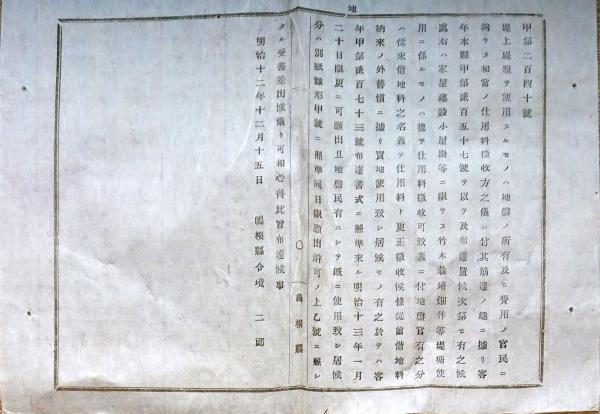 地
甲第二百四十號
堤上堤敷ヲ使用スルモノハ地盤ノ所有及ヒ費用ノ官民ニ
拘ヲス相當ノ仕用料徴收方之儀ニ付其筋達ノ趣ニ據リ客
年本縣甲第貳百五十七號ヲ以テ及布達置候次第モ有之候
處右ハ家屋建設小屋掛等ニ限ラス竹木栽培畑作等堤塘使
用ニ係ルモノハ總テ仕用料徴收可致義ニ付地盤官有之分
ハ從來借地料之名義ヲ仕用料ト更正徴收候條從前借地料
納來ノ外舊慣ニ據リ實地使用致シ居候モノ有之於テハ客
年甲第貳百七十三號布達書式ニ照準來ル明治十三年一月
二十日限更ニ可願出且地盤民有ニシテ既ニ使用致シ居候
分ハ別紙雛形甲號ニ照準同日限願出許可ノ上乙號ニ照シ
島根縣
タル受書差出候儀ト可相心得此旨布達候事
明治十二年十二月十五日　島根縣令境　二郎